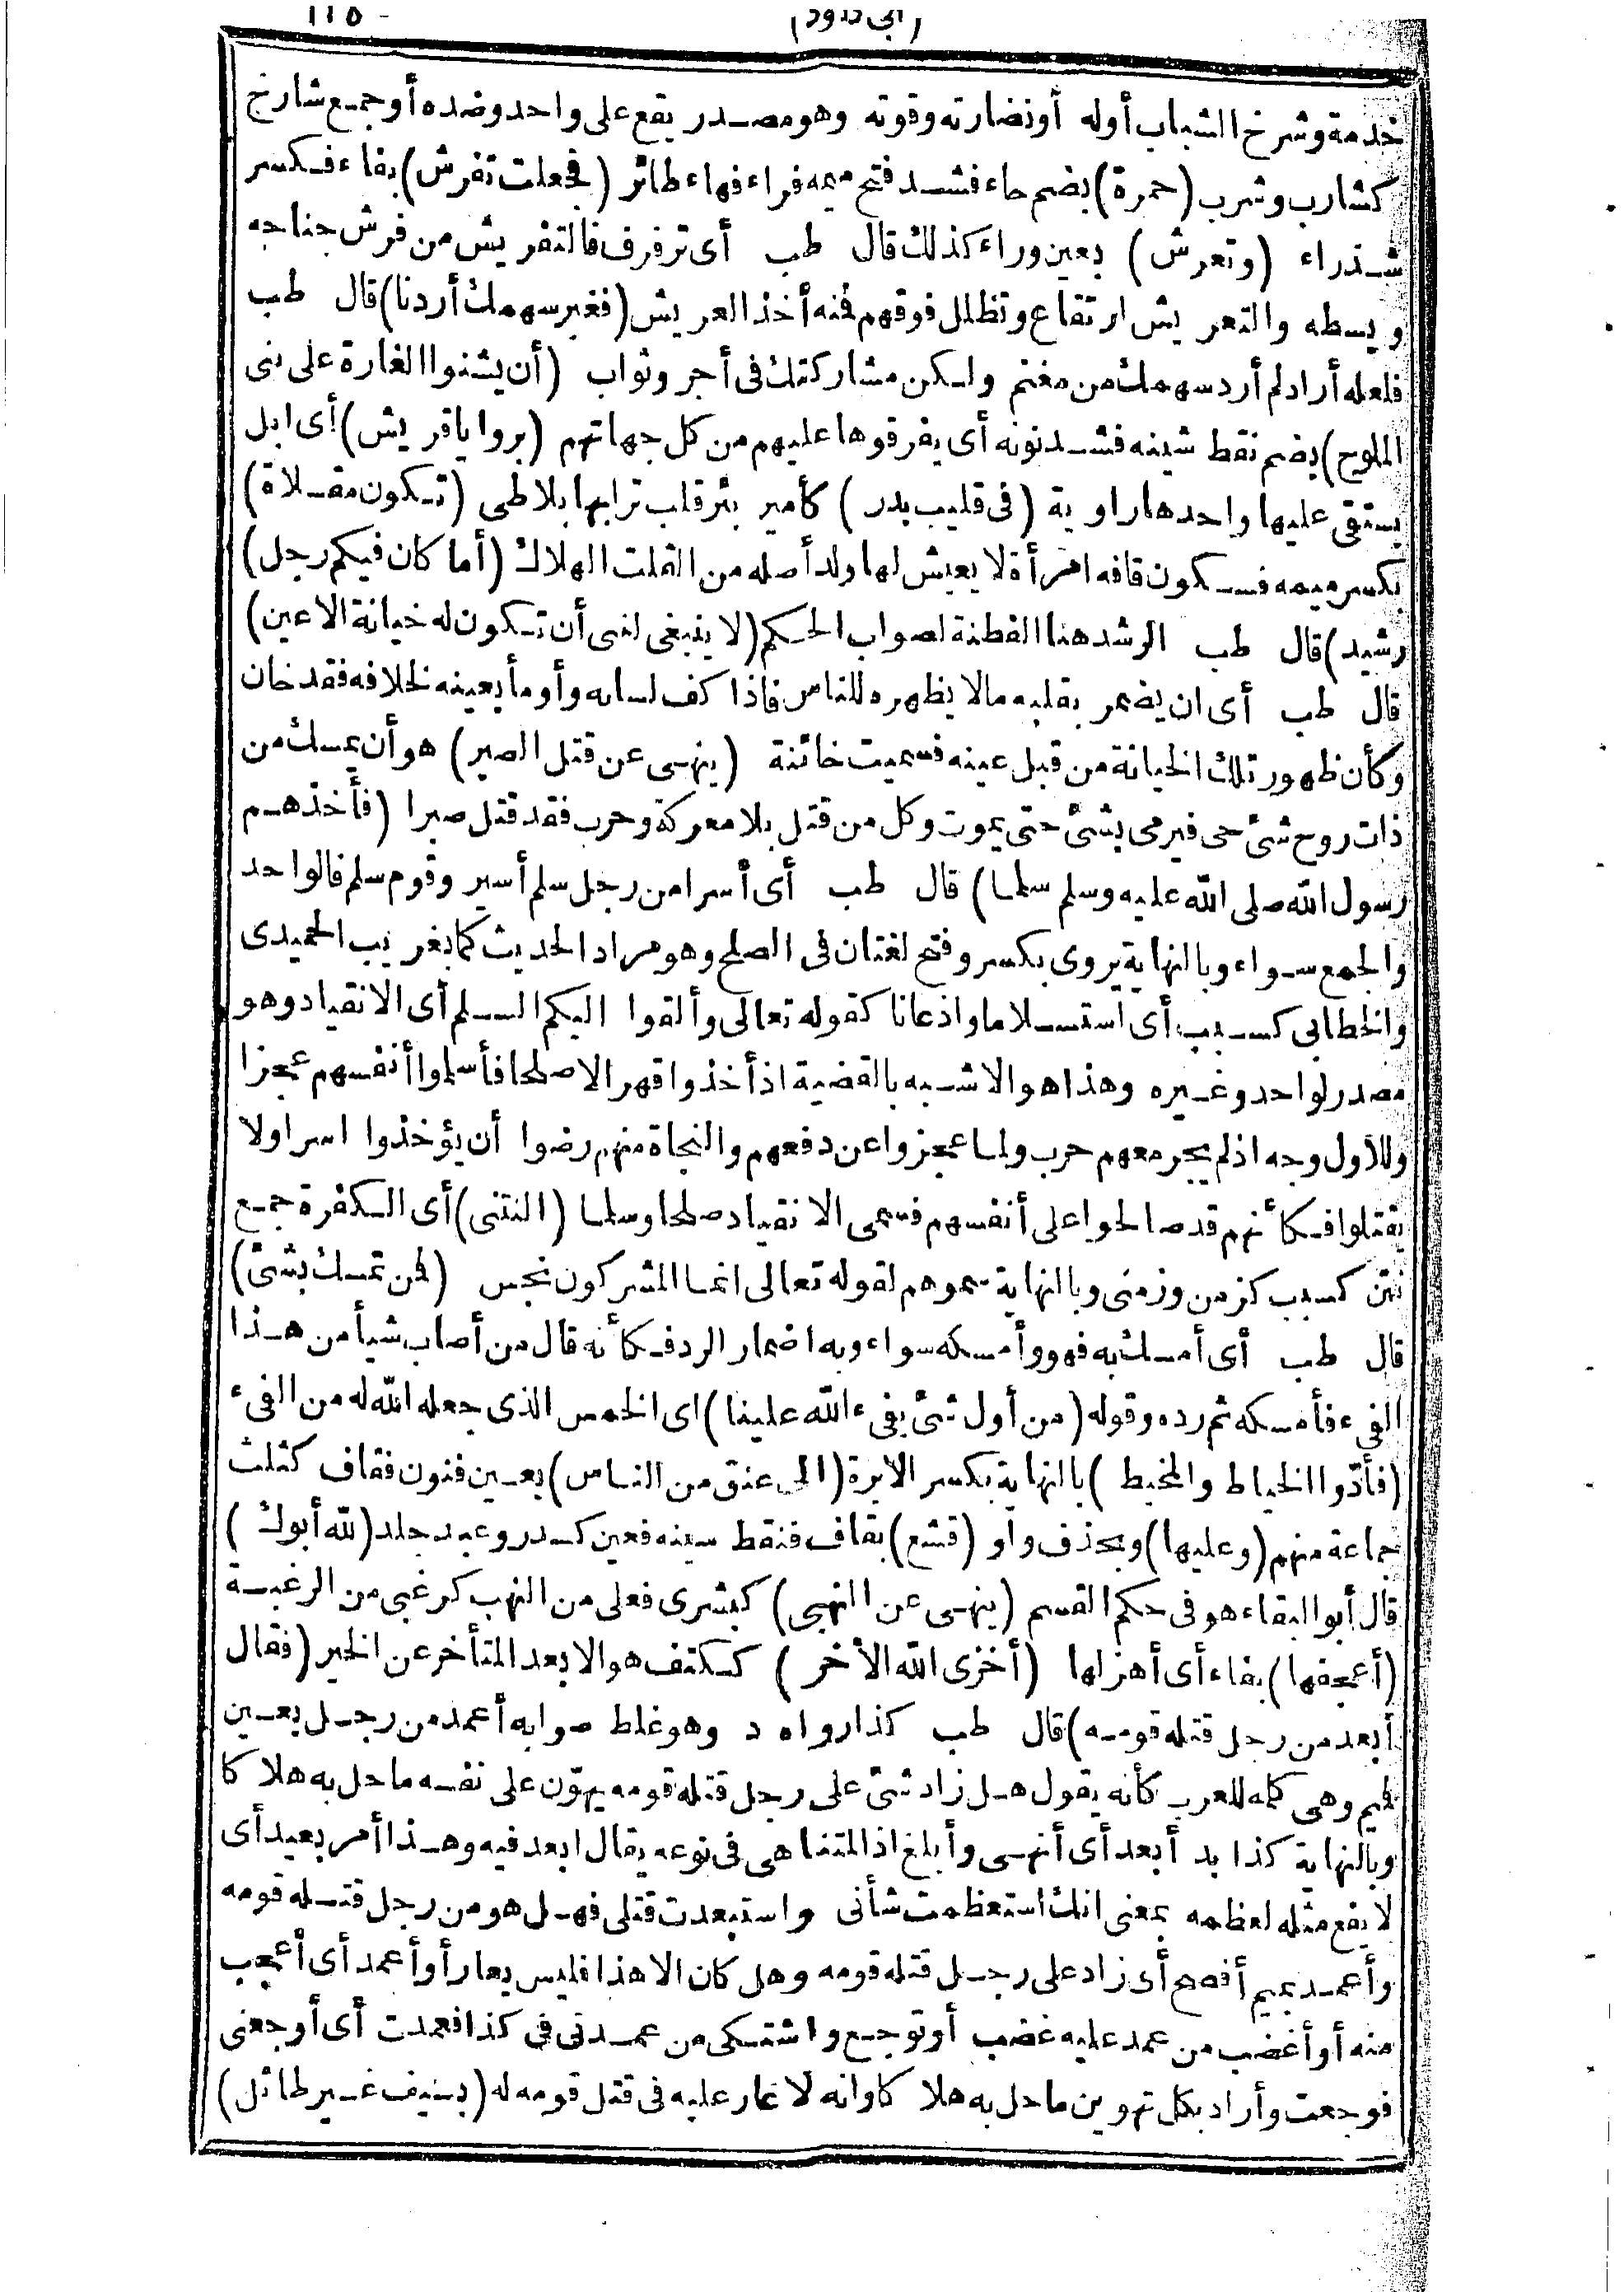 (ابى داود) ١١٥
خدمة وشرخ الشباب أوله أو نضارته وقوته وهو مصدر يقع على واحد وضده أو جمع شارخ
كشارب وشرب (حمرة) بضم حاء فشد فتح ميمه فراء فهاء طائر (فجعلت تفرش) بفاء فكسر
شد راء (وتعرش) بعين وراء كذلك قال طب أى ترفرف فالتفريش من فرش جناحه
ويسطه والتعريش ارتفاع وتظلل فوقهم فمنه أخذ العريش (فغير سهمك أردنا) قال طب
فلعله أراد لم أرد سهمك من مغنم ولكن مشاركتك فى أجر وثواب (أن يشنوا الغارة على بنى
الملوح) بضم نقط شينه فشد نونه أى يفرقوها عليهم من كل جهاتهم (بروايا قريش) أى ابل
يستقى عليها واحدها راوية (فى قليب بدر) كأمير بئر قلب ترابها بلا طى (تكون مقلاة)
بكسر ميمه فسكون قافه امرأة لا يعيش لها ولد أصله من القلت الهلاك (أما كان فيكم رجل)
رشيد) قال طب الرشد هنا الفطنة لصواب الحكم (لا ينبغى لنبى أن تكون له خيانة الاعين)
قال طب أى ان يضمر بقلبه ما لا يظهره للناس فاذا كف لسانه وأومأ بعينه لخلافه فقد خان
وكأن ظهور تلك الخيانة من قبل عينه فسميت خائنة (ينهى عن قتل الصبر) هو أن يمسك من
ذات روح شئ حى فيرمى بشئ حتى يموت وكل من قتل بلا معركة وحرب فقد قتل صبرا (فأخذهم
رسول الله صلى الله عليه وسلم سلما) قال طب أى أسرا من رجل سلم أسير وقوم سلم فالواحد
والجمع سواء وبالنهاية يروى بكسر وفتح لغتان فى الصلح وهو مراد الحديث كما بغريب الحميدى
والخطابى كسبب أى استسلاما واذعانا كقوله تعالى وألقوا اليكم السلم أى الانقياد وهو
مصدر لواحد وغيره وهذا هو الاشبه بالقضية اذ أخذوا قهر الاصلحا فأسلموا أنفسهم عجزا
وللاول وجه اذ لم يجر معهم حرب ولما عجزوا عن دفعهم والنجاة منهم رضوا أن يؤخذوا اسرا ولا
يقتلوا فكأنهم قد صالحوا على أنفسهم فسمى الانقياد صلحا وسلما (النتنى) أى الكفرة جمع
نتن كسبب كزمن وزمنى وبالنهاية سموهم لقوله تعالى انما المشركون نجس (فمن تمسك بشئ)
قال طب أى أمسك به فهو وأمسكه سواء وبه اضمار الرد فكأنه قال من أصاب شيأ من هذا
الفىء فأمسكه ثم رده وقوله (من أول شئ يفىء الله علينا) اى الخمس الذى جعله الله له من الفىء
(فأدّوا الخياط والمخيط) بالنهاية بكسر الابرة (الى عنق من الناس) بعين فنون فقاف كثلث
جماعة منهم (وعليها) وبحذف واو (قشع) بقاف فنقط سينه فعين كسدر وعبد جلد (لله أبوك)
قال أبو البقاء هو فى حكم القسم (ينهى عن النهبى) كبشرى فعلى من النهب كرغبى من الرغبة
(أعجفها) بفاء أى أهزلها (أخزى الله الأخر) ككتف هو الابعد المتأخر عن الخير (فقال
أبعد من رجل قتله قومه) قال طب كذا رواه د وهو غلط صوابه أعمد من رجل بعين
فميم وهى كلمة للعرب كأنه يقول هل زاد شئ على رجل قتله قومه يهوّن على نفسه ما حل به هلا كا
وبالنهاية كذا بد أبعد أى أنهى وأبلغ اذ المتناهى فى نوعه يقال ابعد فيه وهذا أمر بعيد أى
لا يقع مثله لعظمه بمعنى انك استعظمت شأنى واستبعدت قتلى فهل هو من رجل قتله قومه
وأعمد بميم أفصح أى زاد على رجل قتله قومه وهل كان الا هذا فليس بعار أو أعمد أى أعجب
منه أو أغضب من عمد عليه غضب أو توجع واشتكى من عمدنى فى كذا فعمدت أى أوجعنى
فوجعت وأراد بكل تهوين ما حل به هلا كا وانه لا عار عليه فى قتل قومه له (بسيف غير طائل)